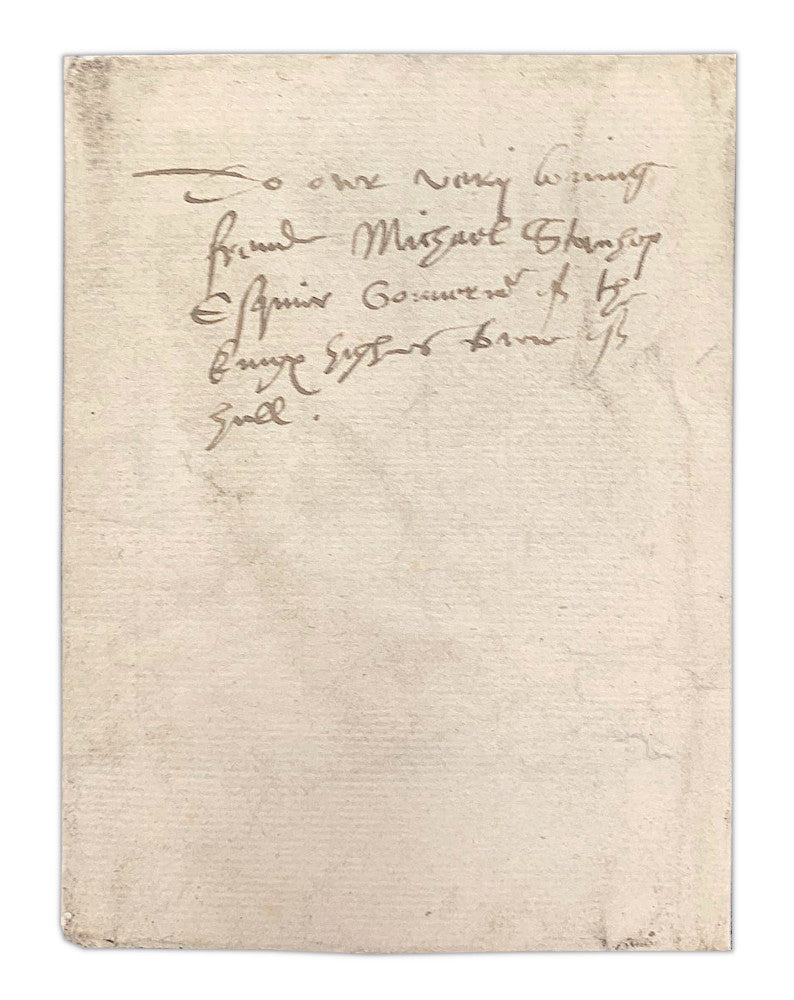 To our very loving
frend Michael Stanhop
Esquier Governor of the
kings highnes towne of
hull.